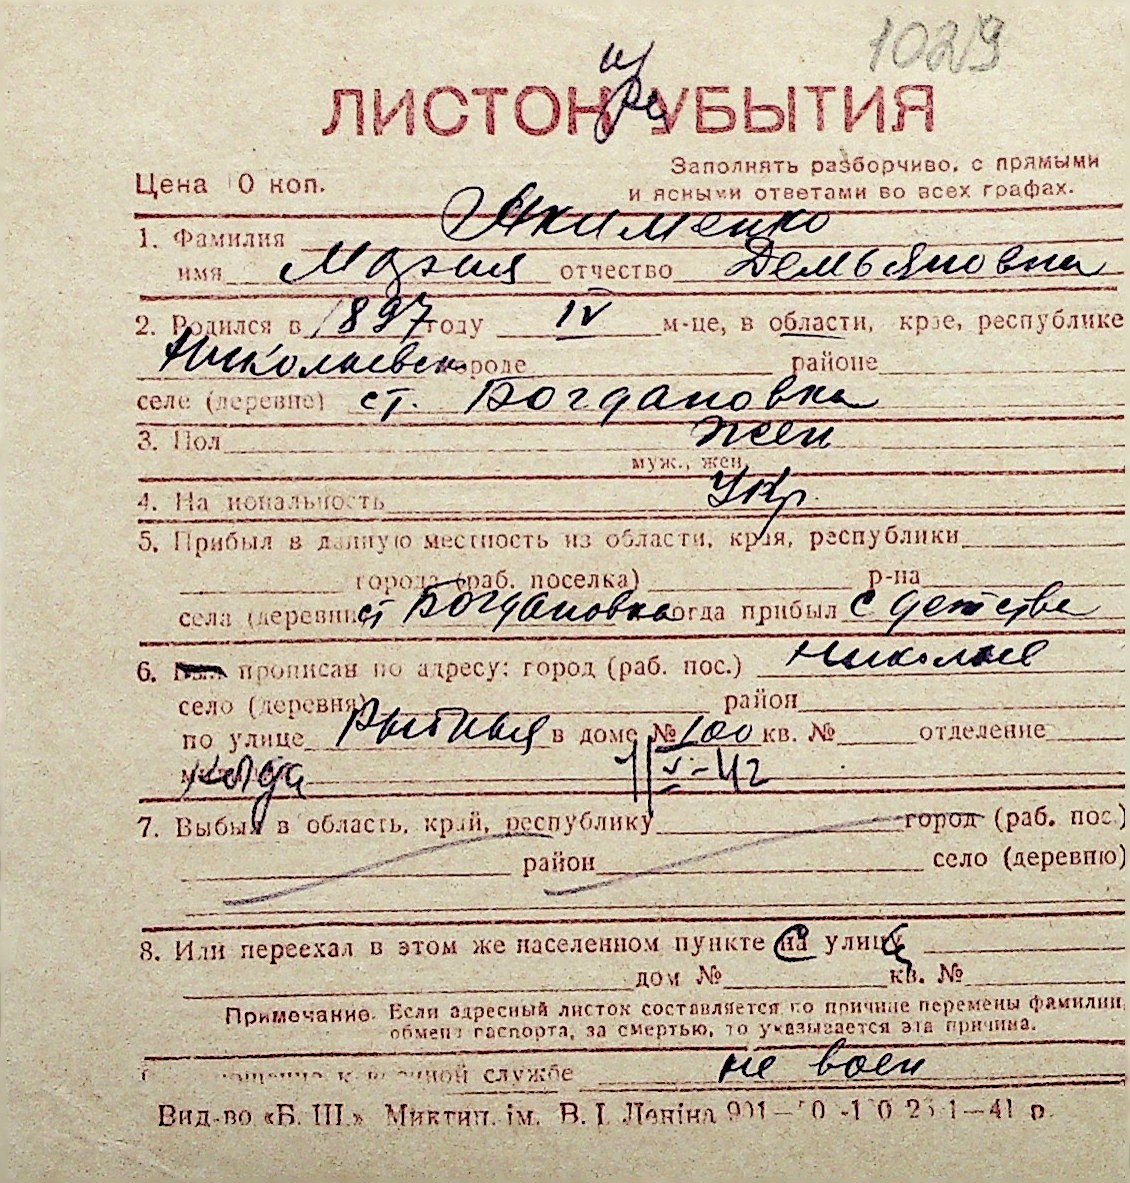 1029
ЛИСТОК УБЫТИЯ
Заполнять разборчиво, с прямыми
Цена 10 коп.
и ясными ответами во всех графах.
1. Фамилия Якименко
имя Мария отчество Демьяновна
2. Родился в 1897 году IV м-це, в области, крае, республике
Николаевск городе районе
селе (деревне) ст. Богдановка
3. Пол жен
муж., жен.
4. Национальность Укр.
5. Прибыл в данную местность из области, края, республики
города (раб. поселка) р-на
села (деревни) ст Богдановка когда прибыл с детства
6. Был прописан по адресу: город (раб. пос.) Николаев
село (деревня) район
по улице Рыбная в доме № 100 кв. № отделение
когда 11/V-42
7. Выбыл в область, край, республику город (раб. пос.)
район село (деревню)
8. Или переехал в этом же населенном пункте на улицу
дом № кв. №
Примечание. Если адресный листок составляется по причине перемены фамилии,
обмена паспорта, за смертью, то указывается эта причина.
военной службе не воен
Вид-во «Б. Ш.» Миктип. ім. В. І. Леніна 1—41 р.